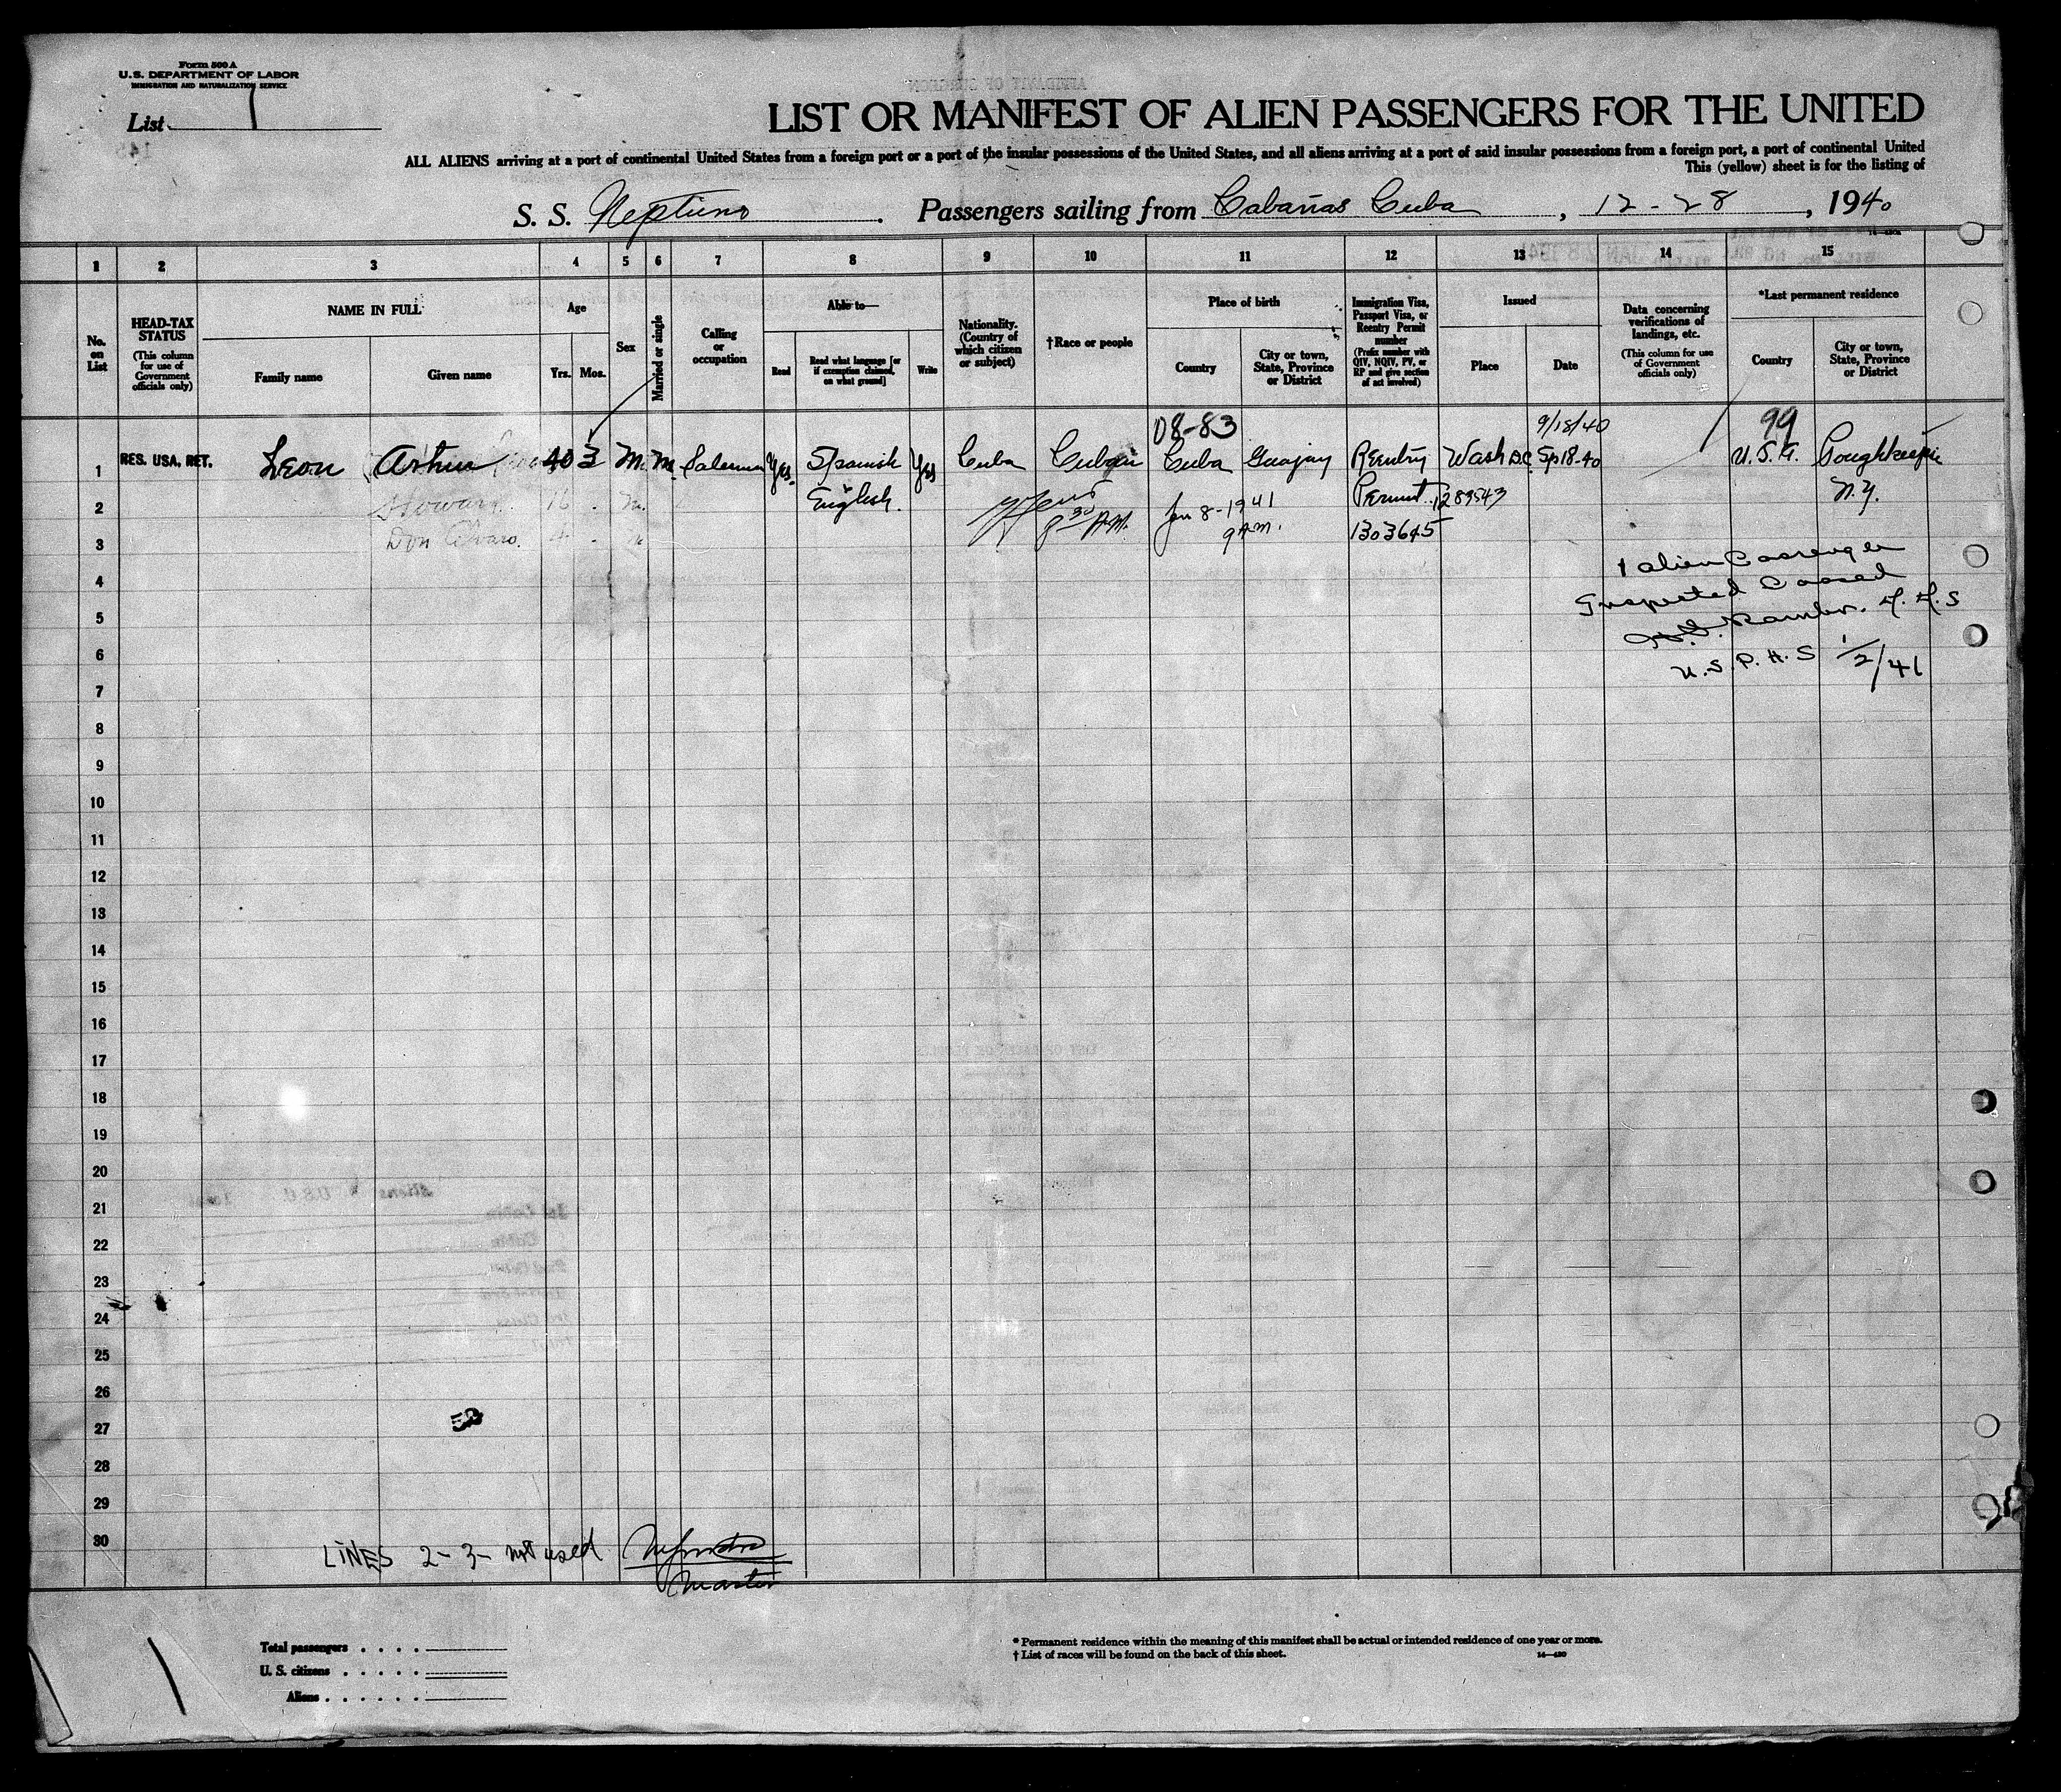 Form 500 A
U.S. DEPARTMENT OF LABOR
IMMIGRATION AND NATURALIZATION SERVICE
List 1
LIST OR MANIFEST OF ALIEN PASSENGERS FOR THE UNITED
ALL ALIENS arriving at a port of continental United States from a foreign port or a port of the insular possessions of the United States, and all aliens arriving at a port of said insular possessions from a foreign port, a port of continental United
This (yellow) sheet is for the listing of
S. S. Neptuno. Passengers sailing from Cabañas Cuba, 12-28, 1940
1 2 3 4 5 6 7 8 9 10 11 12 13 14 15
No. on List
HEAD-TAX STATUS
(This column for use of Government officials only)
NAME IN FULL
Family name
Given name
Age
Yrs. Mos.
Sex
Married or single
Calling or occupation
Able to—
Read
Read what language [or if exemption claimed, on what ground]
Write
Nationality. (Country of which citizen or subject)
†Race or people
Place of birth
Country
City or town, State, Province or District
Immigration Visa, Passport Visa, or Reentry Permit number
(Prefix number with QIV, NQIV, PV, or RP and give section of act involved)
Issued
Place
Date
Data concerning verifications of landings, etc.
(This column for use of Government officials only)
*Last permanent residence
Country
City or town, State, Province or District
08-83 9/18/40 99
1 RES. USA. RET. Leon Arthur 40 3 M. M. Salesman Yes. Spanish Yes Cuba Cuban Cuba Guajay Reentry Wash DC Sp 18-40 U.S.A. Poughkeepsie
2 Howard 16 M. English. 8 30 A.M. Jan 8-1941 Permit 1289543 N.Y.
3 Don Alvaro. 4 9 A.M. 1303645
4 1 alien Passenger
5 Inspected Passed
6 U.S.P.H.S 1/2/41
7
8
9
10
11
12
13
14
15
16
17
18
19
20
21
22
23
24
25
26
27
28
29
30
LINES 2-3- not used
Master
Total passengers . . . .
U. S. citizens . . . . .
Aliens . . . . . .
* Permanent residence within the meaning of this manifest shall be actual or intended residence of one year or more.
† List of races will be found on the back of this sheet.
14—480